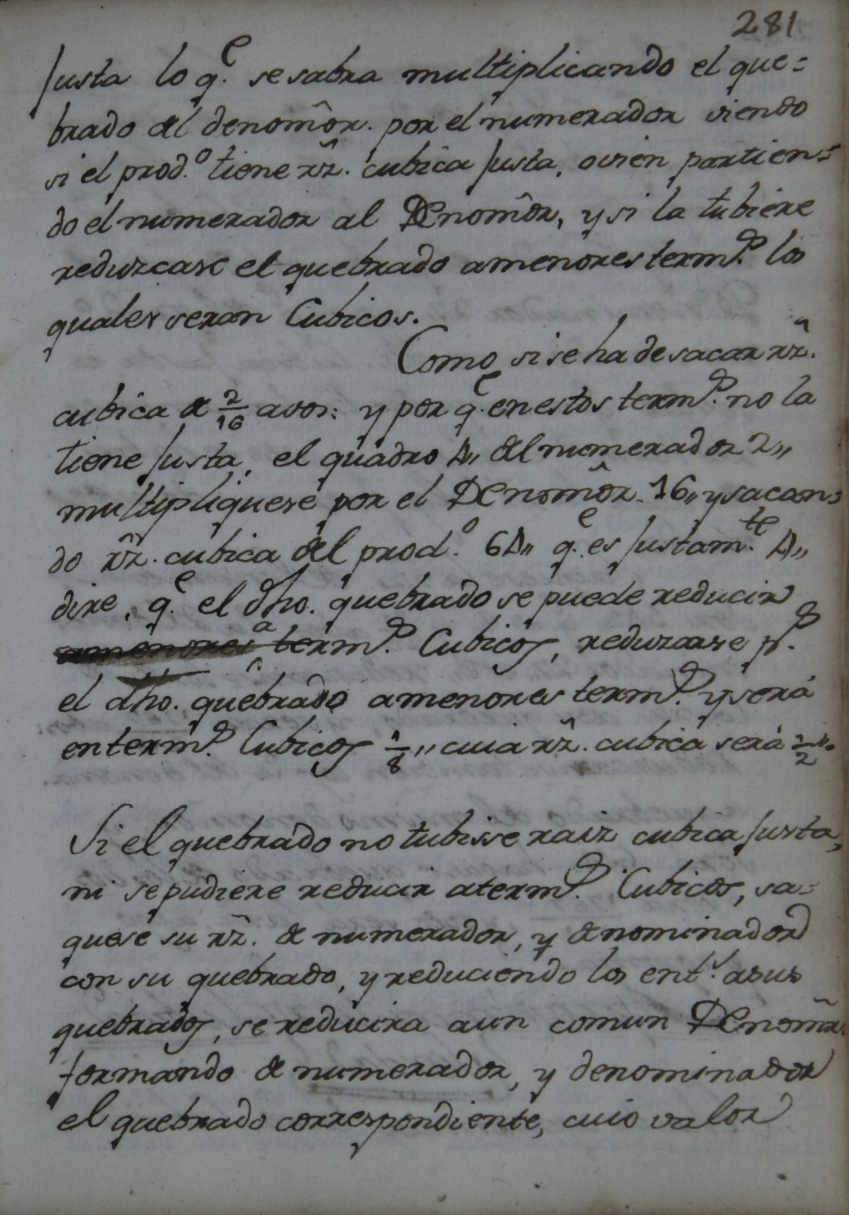 281
justa lo q.e se sabra multiplicando el que=
brado del denomôr. por el numerador viendo
si el prod.o tiene rẑ. cubica justa, o vien partien=
do el numerador al Denomôr, y si la tubiere
reduzcase el quebrado a menores term.s los
quales seran Cubicos.
Como si se ha de sacar rẑ.
cubica de 2/16 avos: y por q.e en estos term.s no la
tiene justa, el quadro 4,, del numerador 2,,
multipliquese por el Denomôr. 16,, y sacan=
do rẑ. cubica del prod.o 64,, q.e es justam.te 4,,
dire, q.e el dho. quebrado se puede reducir
a term.s Cubicos, reduzcase p.s
el dho. quebrado a menores term.s y será
en term.s Cubicos 1/8,, cuia rẑ. cubica será 1/2,,
Si el quebrado no tubisse raiz cubica justa,
ni se pudiere reducir a term.s Cubicos, sa=
quese su rẑ. de numerador, y denominador
con su quebrado, y reduciendo los ent.s a sus
quebrados, se reducira a un comun Denomôr.
formando de numerador, y denominador
el quebrado correspondiente, cuio valor